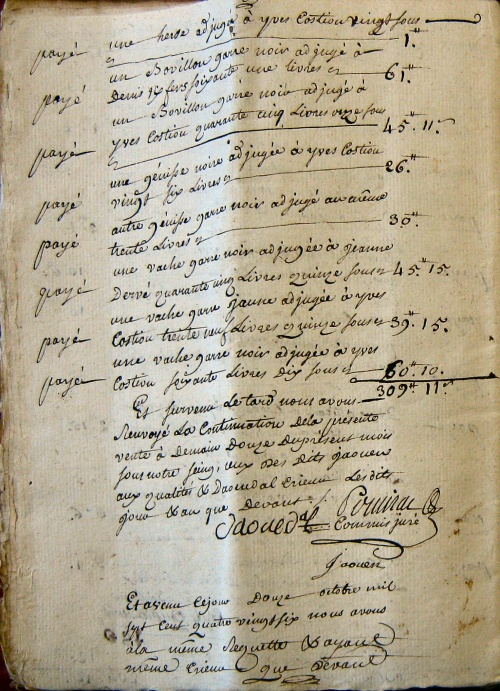 payé une herse adjugé à yves Costiou vingt sous 1.#
un Bovillon garre noir adjugé à
payé Denis soixante une livres 61.#
un Bovillon garre noir adjugé à
payé yves Costiou quarante cinq Livres onze sous 45.# 11.s
une génisse noire adjugée à yves Costiou
payé vingt six Livres 26.#
autre génisse garre noir adjugé au même
payé trente Livres 30.#
une vache garre noir adjugée à jeanne
payé Dervé quarante cinq Livres quinze sous 45.# 15.
une vache garre jaune adjugée à yves
payé Costiou trente neuf Livres quinze sous 39.# 15.
une vache garre noir adjugée à yves
payé Costiou soixante Livres dix sous 60.# 10.
309.# 11.s
Et survenu Le tard nous avons
Renvoyé La Continuation De la présente
vente à Demain Douze Du présent mois
sous notre seing, ceux Des Dits jaouen
aux qualités & Daoudal crieur Les dits
jour & an que Devant.
Daoudal Commis juré
jaouen
Et avenu Ce jour Douze octobre mil
sept cent quatre vingt six nous avons
à la même Requette & ayant
même Crieur que Devant